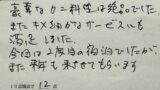 豪華なカニ料理は絶品でした
またキメ細かなサービスにも
満足しました
今回は2度目の宿泊でしたが
また来年も来させてもらいます
12点